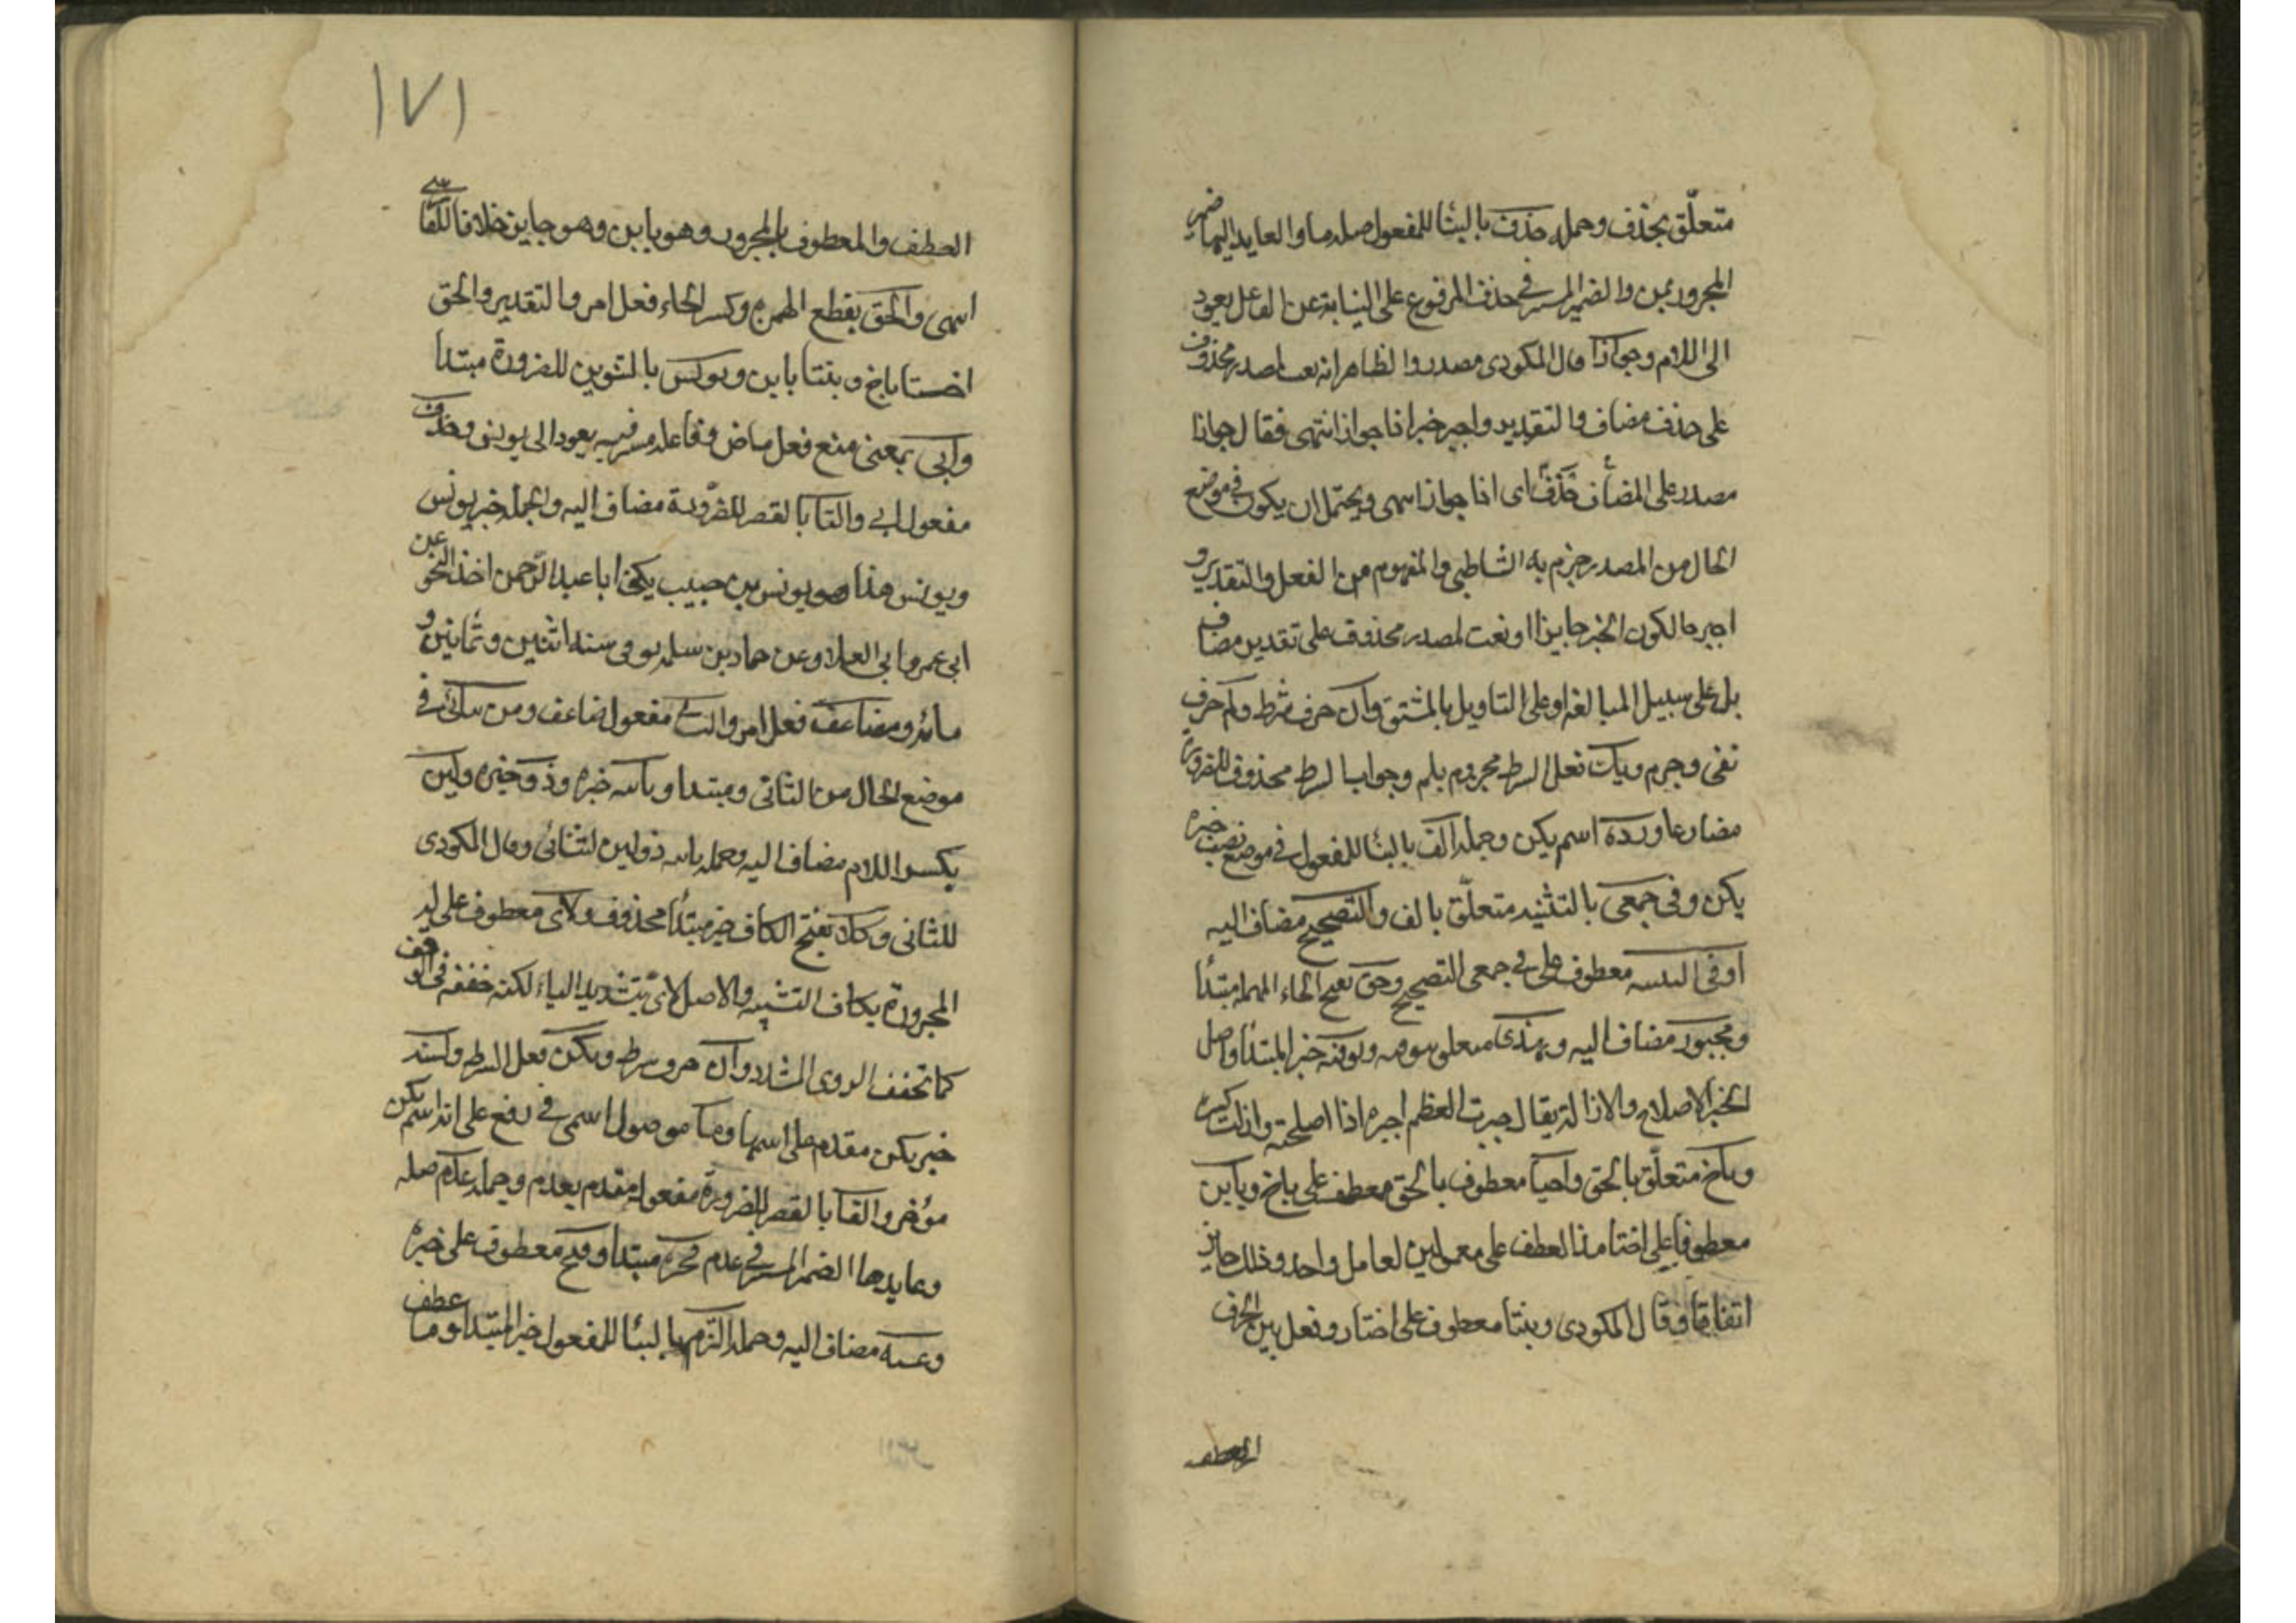 متعلّق بحذف وجملة حذف بالبنا للمفعول صلة ما والعايد اليها ضمير
المجرور بمن والضمير المستتر في حذف المرفوع على النيابة عن الفاعل يعود
الى اللام وجوازا قال المكودى مصدر والظاهر انه نعت لمصدر محذوف
على حذف مضاف والتقدير واجبر خبرا ذا جواز انتهى فقال جوازا
مصدر على المضاف حذف اى ذا جواز انتهى ويحتمل ان يكون في موضع
الحال من المصدر جزم به الشاطبي والمفهوم من الفعل والتقدير و
اجبر حالكون الجبر جايزا او نعت لمصدر محذوف على تقدير مضاف
بل على سبيل المبالغة او على التاويل بالمشتق وان حرف شرط ولم حرف
نفى وجزم ويك فعل الشرط مجزوم بلم وجواب الشرط محذوف للضرورة
مضارعا ورده اسم يكن وجملة الف بالبنا للمفعول في موضع نصب خبر
يكن وفى جمعى بالتثنية متعلّق بالف والتصحيح مضاف اليه
او في التثنية معطوف على في جمعى التصحيح وحق بفتح الحاء المهملة مبتدأ
ومجبور مضاف اليه وبهذى متعلق بتوفية وتوفية خبر المبتدأ واصل
الجبر الاصلاح والازالة يقال جبرت العظم اجبره اذا اصلحته وازلت كسره
وباخ متعلّق بالحق واختا معطوف بالحق معطوف على باخ وبابن
معطوفا على اختا هذا العطف على معمولين لعامل واحد وذلك جايز
اتفاقا وقال المكودى وبنتا معطوف على اختا وفصل بين الحرف
العطف
١٧١
العطف والمعطوف بالمجرور وهو بابن وهو جايز خلافا للفارسي
انتهى والحق بقطع الهمزة وكسر الحاء فعل امر والتقدير والحق
اختا باخ وبنتا بابن ويونس بالتنوين للضرورة مبتدا
وابى بمعنى منع فعل ماض وفاعله مستتر فيه يعود الى يونس وحذف
مفعول ابى والتا بالقصر للضرورة مضاف اليه والجملة خبر يونس
ويونس هذا هو يونس بن حبيب يكنى ابا عبد الرحمن اخذ النحو عن
ابى عمرو ابى العلا وعن حماد بن سلمة توفى سنة اثنين وثمانين و
مائة وضاعف فعل امر والثاني مفعول ضاعف ومن ثنائي في
موضع الحال من الثانى ومبتدا وثانيه خبره وذو خبره ولين
بكسر اللام مضاف اليه وجملة ثانيه ذو لين لثنائى وقال المكودى
للثانى وكلا بفتح الكاف خبر مبتدأ محذوف ولائ معطوف على لا
المجرورة بكاف التشبيه والاصل لائ بتشديد الياء لكنه خففه في الوقف
كما تخفف الروى المشدد وان حرف شرط ويكن فعل الشرط وكشية
خبر يكن مقدم على اسمها وما موصول اسمى في رفع على انه اسم يكن
مؤخر والفا بالقصر للضرورة مفعول مقدم بعدم وجملة عدم صلة
وعايدها الضمير المستتر في عدم فجبره مبتدا وفتح معطوف على خبره
وعينه مضاف اليه وجملة التزم بالبنا للمفعول خبر المبتدا وما عطف